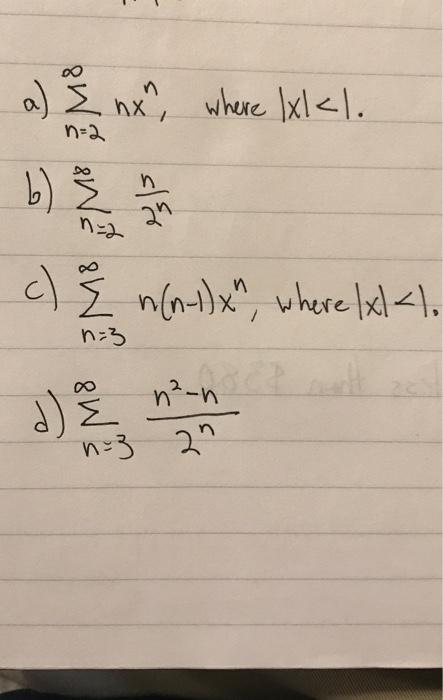 a) ∞ Σ n=2 nxⁿ, where |x|<1.
b) ∞ Σ n=2 n/2ⁿ
c) ∞ Σ n=3 n(n-1)xⁿ, where |x|<1.
d) ∞ Σ n=3 n²-n/2ⁿ